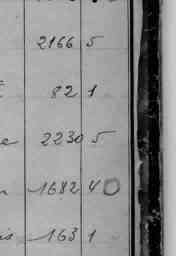 2166 5
82 1
e 2230 5
1682 40
is 163 1